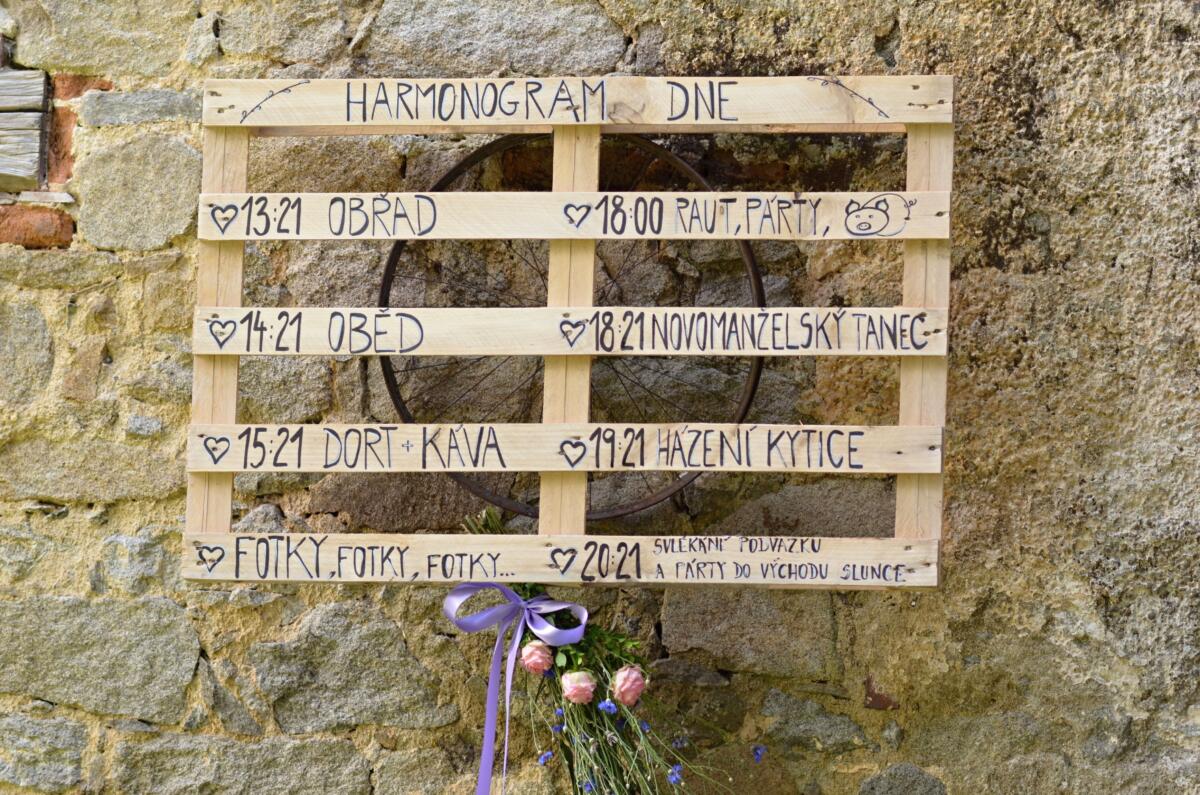 HARMONOGRAM DNE
13:21 OBŘAD
14:21 OBĚD
15:21 DORT + KÁVA
FOTKY, FOTKY, FOTKY...
18:00 RAUT, PÁRTY,
18:21 NOVOMANŽELSKÝ TANEC
19:21 HÁZENÍ KYTICE
20:21 SVLÉKÁNÍ PODVAZKU
A PÁRTY DO VÝCHODU SLUNCE